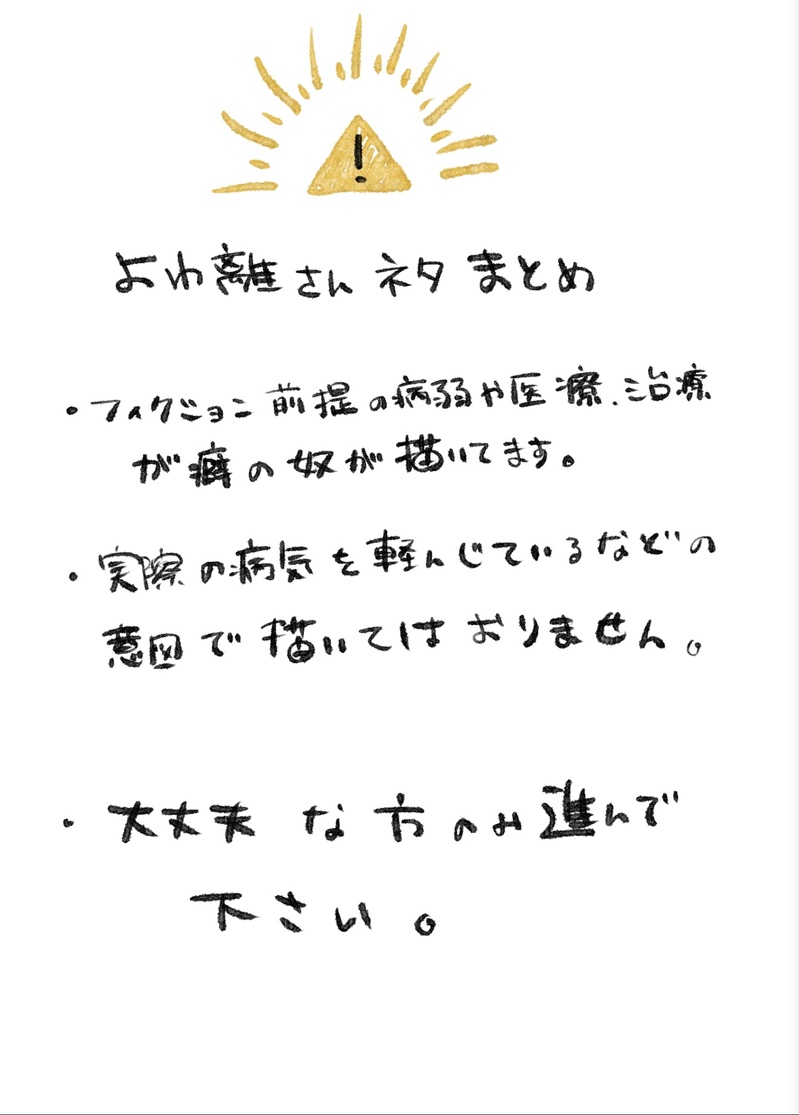 !
よわ離さん ネタ まとめ
・フィクション前提の病弱や医療、治療
が癖の奴が描いてます。
・実際の病気を軽んじているなどの
意図で描いてはおりません。
・大丈夫な方のみ進んで
下さい。